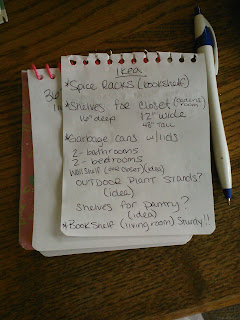 Ikea
*Spice Racks (bookshelf)
*Shelves for closet
16" deep 12" wide
48" tall
*Garbage cans w/lids
2-bathrooms
2-bedrooms
Wallshelf (over closet) (idea)
OUTDOOR PLANT STANDS?
(idea)
Shelves for pantry?
(idea)
*Bookshelf (livingroom) Sturdy!!